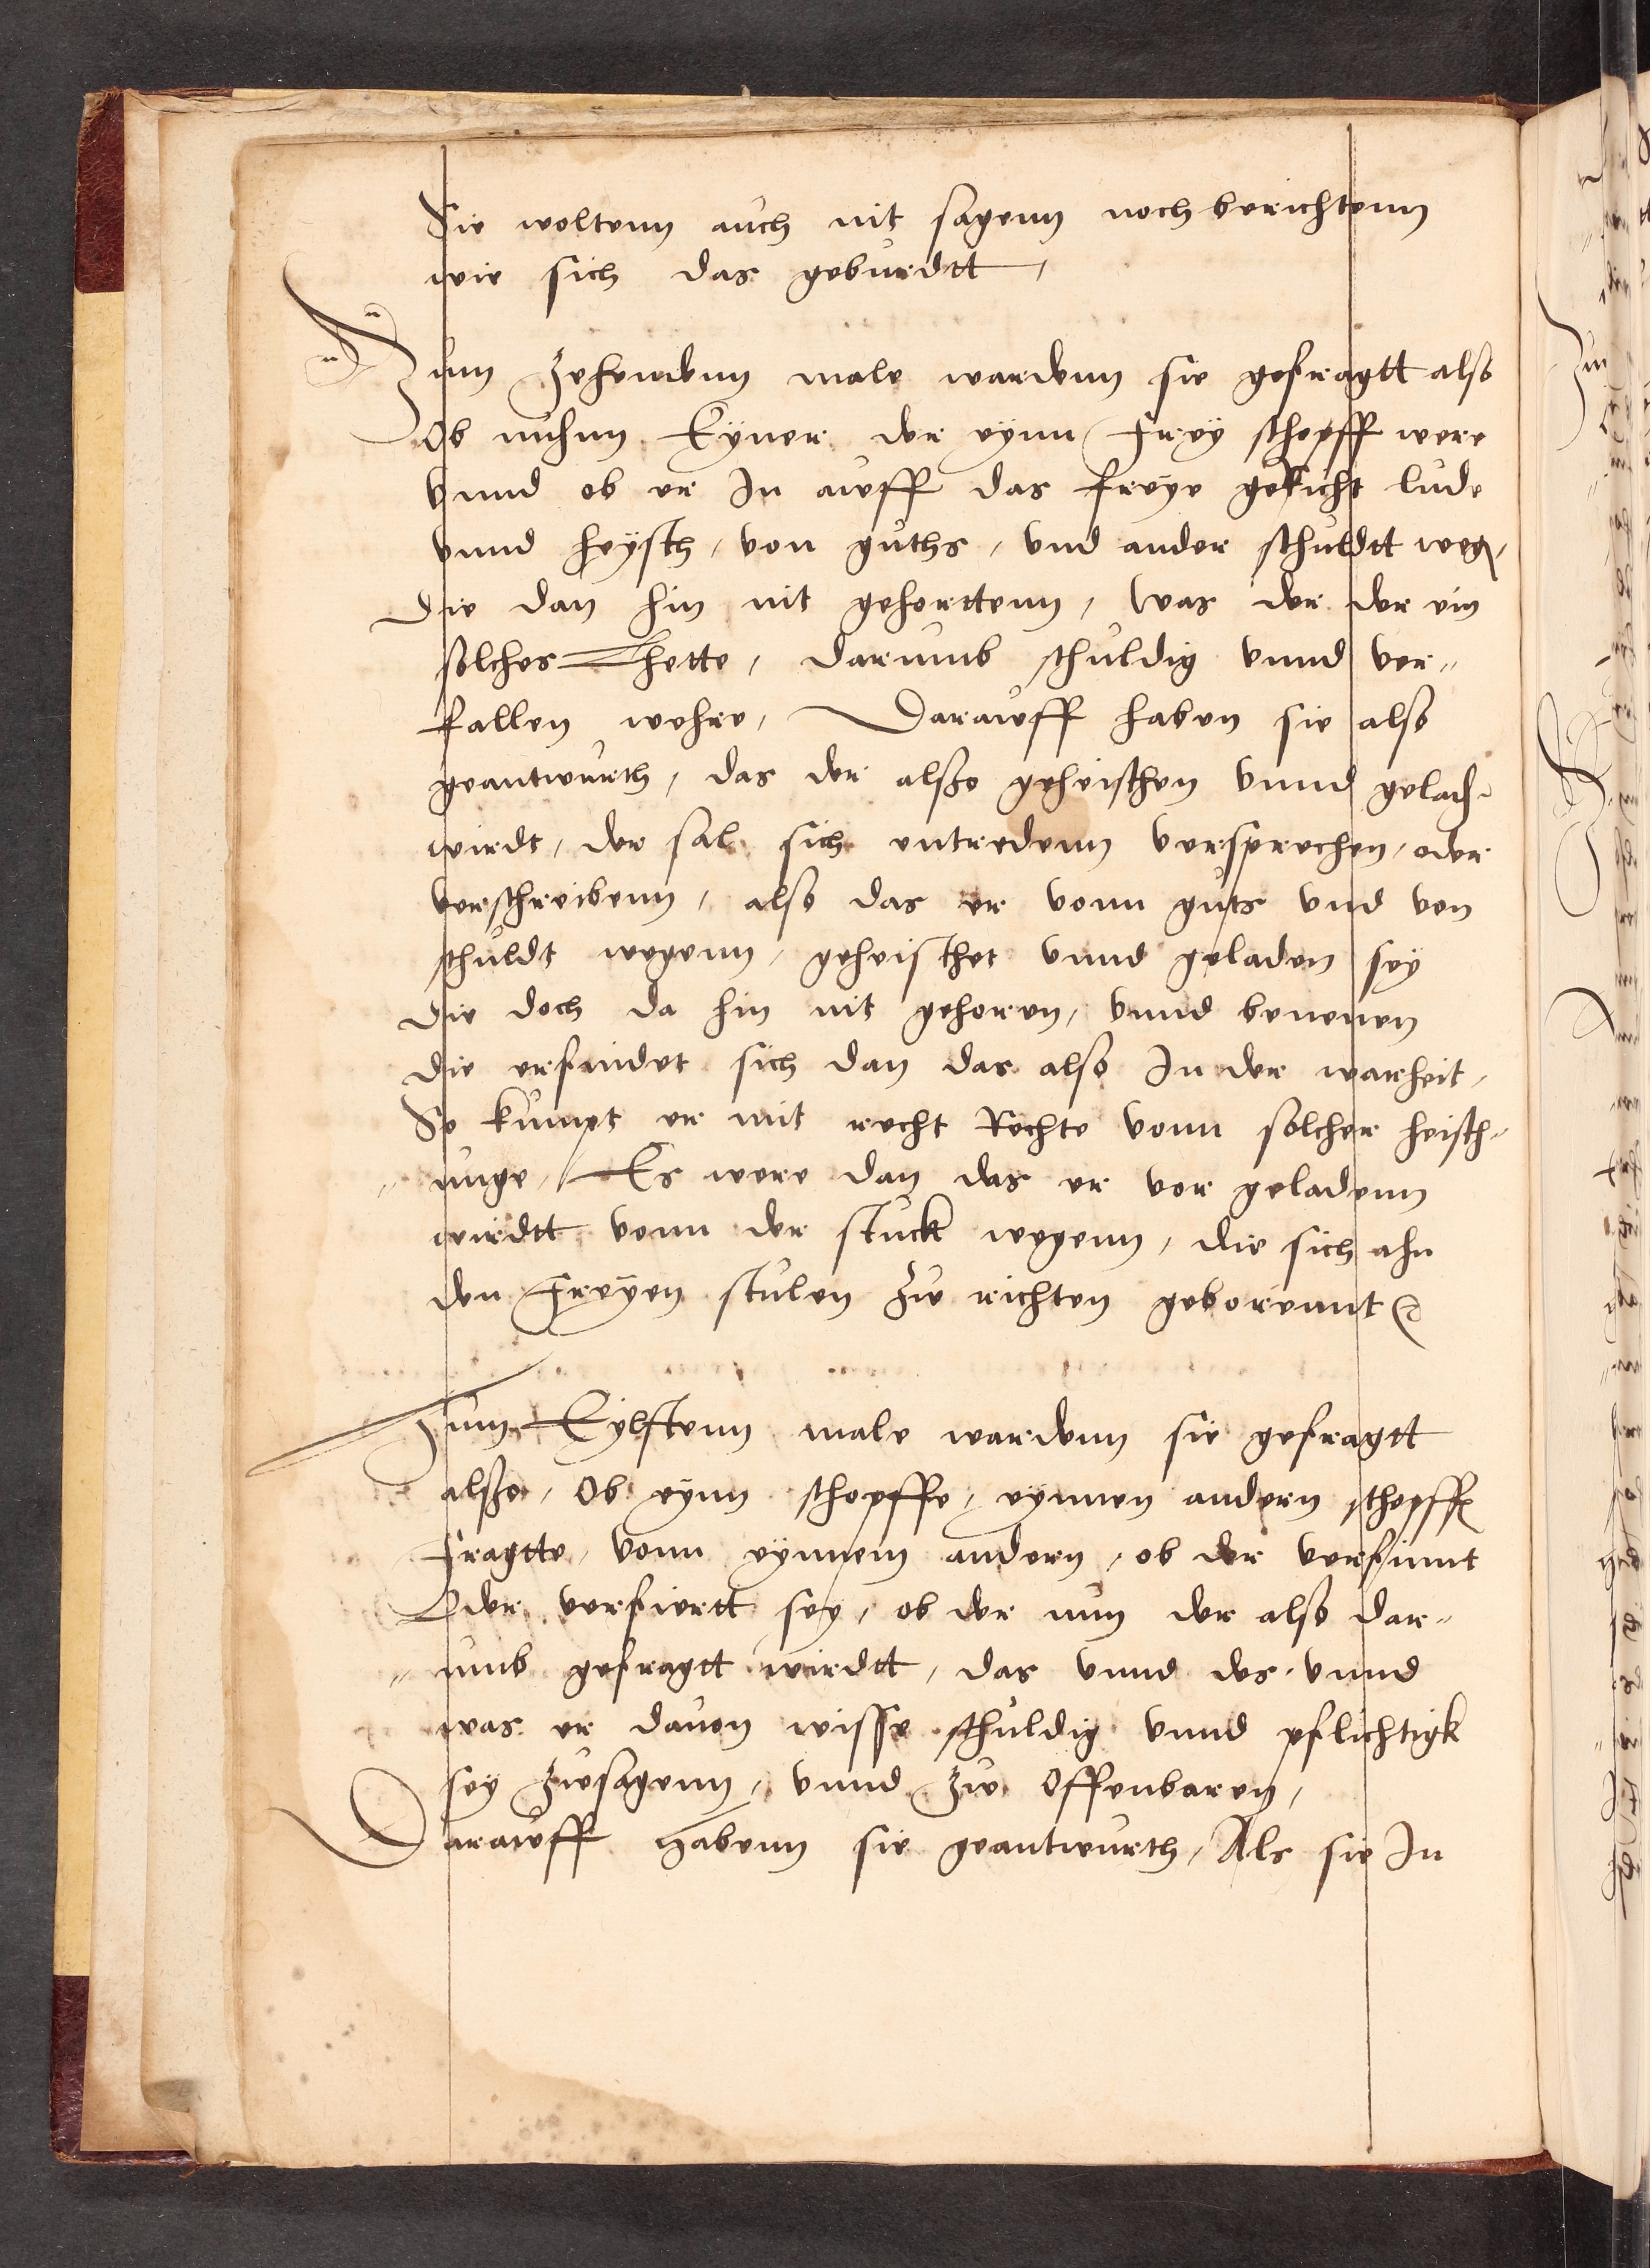 Sie woltenn auch nit sagenn noch berichtenn
wie sich das geburdtt,
Zum Zehendenn male wardenn sie gefragtt also
Ob nuhnn Eyner der eynn Frey schopff were
vnnd ob er In auff das freye gericht lude
vnnd heysch, von guths, vnd ander schuldtt weg
die dan hin nit gehorttenn, was der der ein
solches Thette, darumb schuldig vnnd ver„
fallen wehre, Darauff haben sie also
geantwurth, das der alsße geheischen vnnd gelad
wirdt, der sal sich entredenn versprechen, oder
verschreibenn, also das er vonn guts vnd von
schuldt wegenn, geheischet vnnd geladen sey
die doch da hin nit gehoren, vnnd benenen
die erfindet sich dan das also In der warheit,
So kumpt er mit recht Rechte vonn solcher heisch„
„ unge, Es were dan das er vor geladenn
wirdtt vonn der stuck wegenn, die sich ahn
den Freyen stulen zu richten geborennt
Zum Eylfftenn male wardenn sie gefragtt
alsße, Ob eynn schopffe, eynnen andern schopff
fragtte, vonn eynnem andern, ob der verfimt
Oder verfiertt sey, ob der nun der also dar„
„ umb gefragtt wirdtt, das vnnd des vnnd
was er dauon wisse schuldig vnnd pflichtigk
sey zusagenn, vnnd zu Offenbaren,
Darauff habenn sie geantwurth, Als sie In